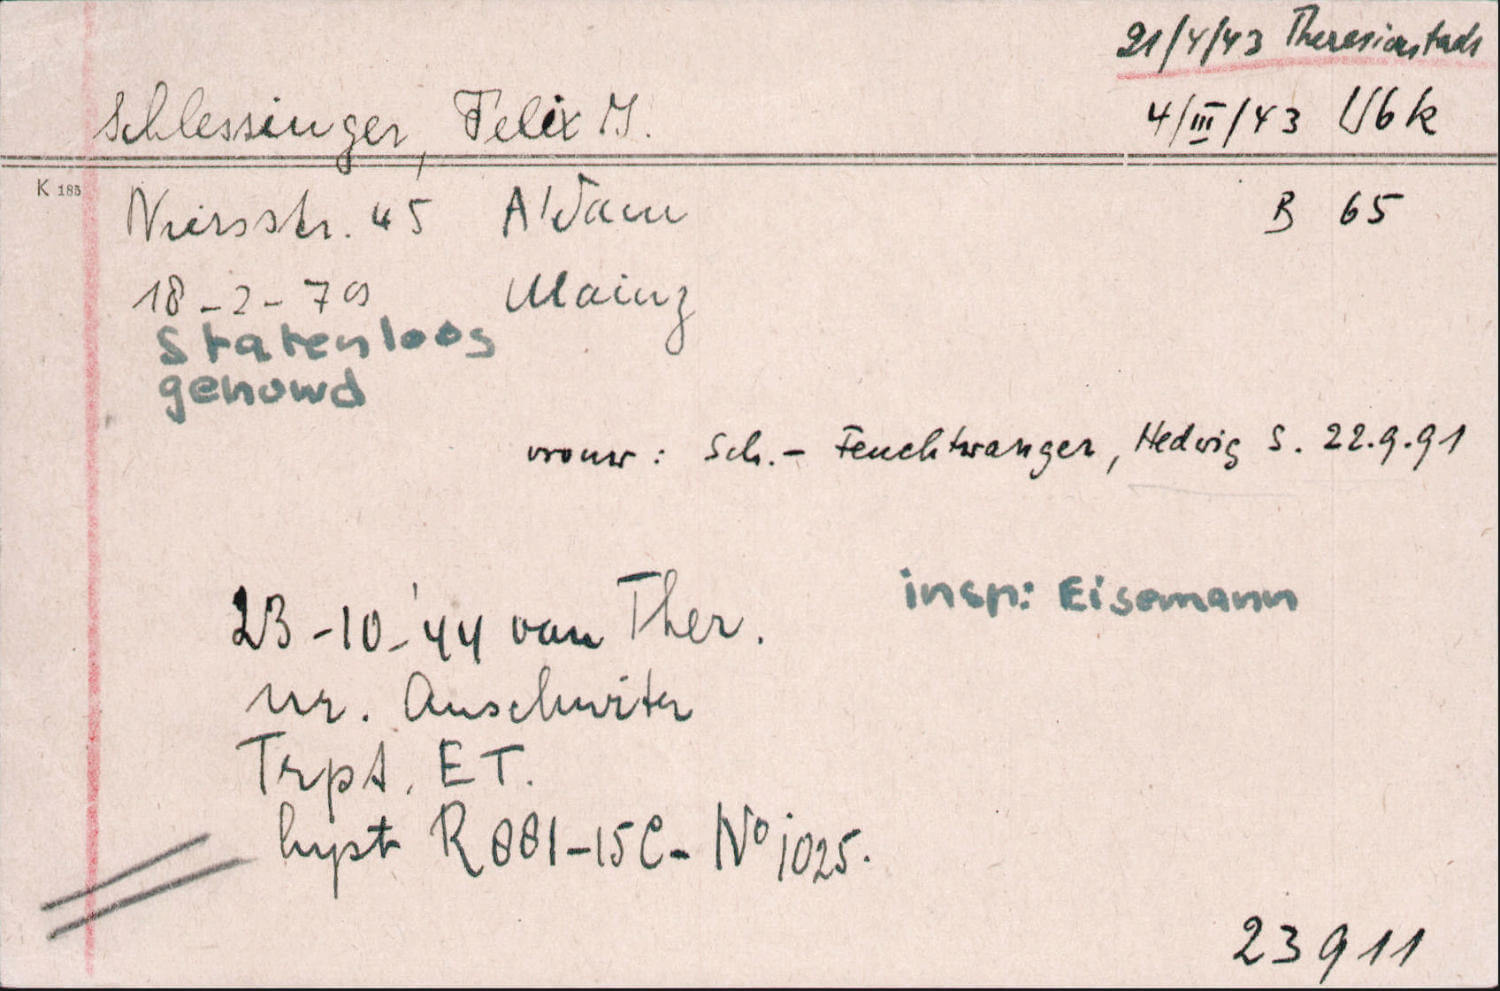 21/4/43 Theresienstadt
Schlessinger, Felix I.
4/III/43 Wbk
K 185
Niersstr. 45 A'dam
B 65
18-2-79 Mainz
Statenloos
gehuwd
vrouw: Sch.- Feuchtwanger, Hedwig S. 22.9.91
insp: Eisemann
23-10-'44 van Ther.
nr. Auschwitz
Trpt. ET.
lyst R881-15C- No 1025.
23911